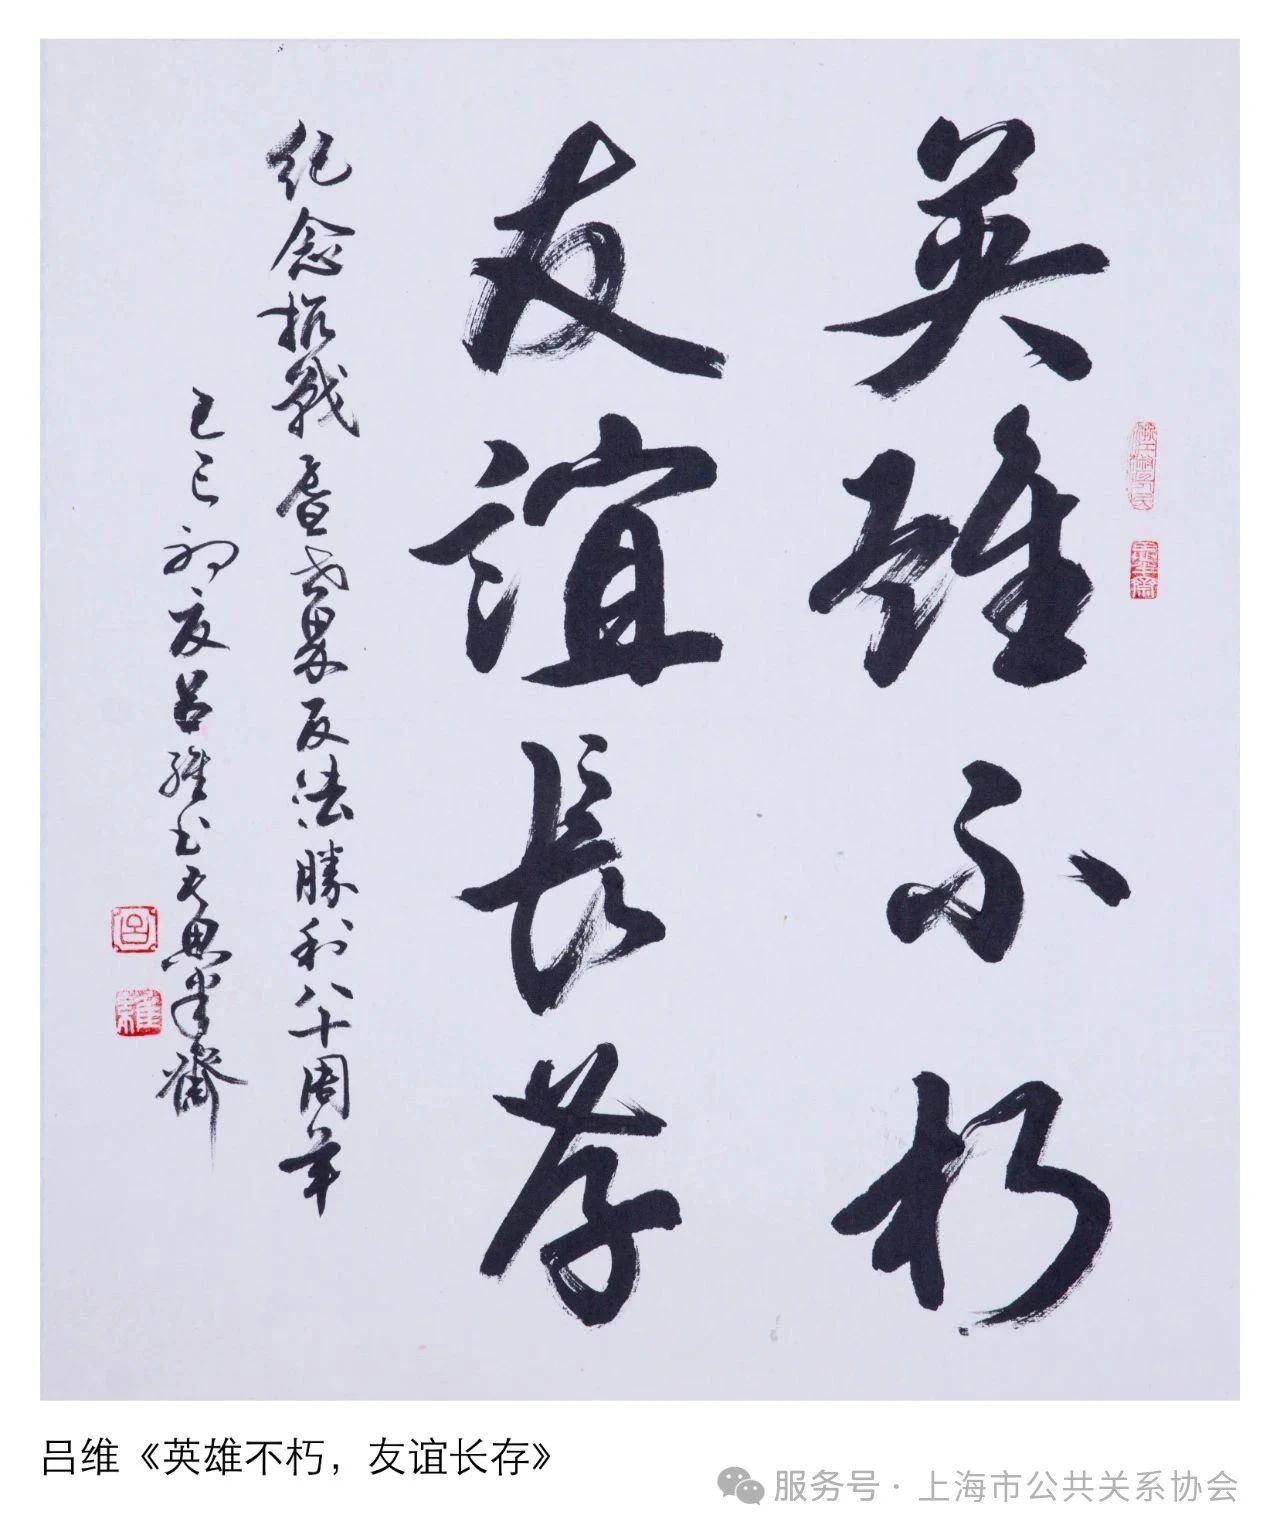 英雄不朽
友誼長存
紀念抗戰暨世界反法勝利八十周年
乙巳初夏呂維書於思齋
呂
維
吕维《英雄不朽，友谊长存》
服务号 · 上海市公共关系协会